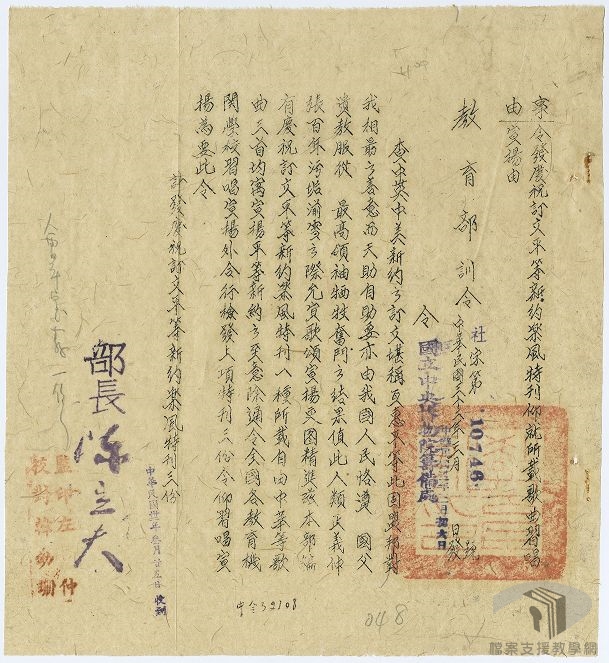 事 令發慶祝訂立平等新約樂風特刊仰就所載歌曲習唱
由 宣揚由
教育部訓令
社 字第 10746 號
中華民國三十二年三月 日發
令
國立中央博物院籌備處
查中英中美新約之訂立堪稱互惠平等此固盟邦對
我相最之善意而天助自助要亦由我國人民恪遵 國父
遺教服從 最高領袖犧牲奮鬥之結果值此人類正義伸
張百年污垢湔雪之際允宜歌頌宣揚更圖精進該本部編
有慶祝訂立平等新約樂風特刊一種所載自由中華等歌
曲三首均寓宣揚平等新約之至意除通令全國各教育機
關學校習唱宣揚外合行檢發上項特刊三份令仰習唱宣
揚為要此令
計發慶祝訂立平等新約樂風特刊三份
部長 陳立夫
中華民國卅二年叁月廿五日 收到
監印左 仲
校對
中令32108
248
檔案支援教學網